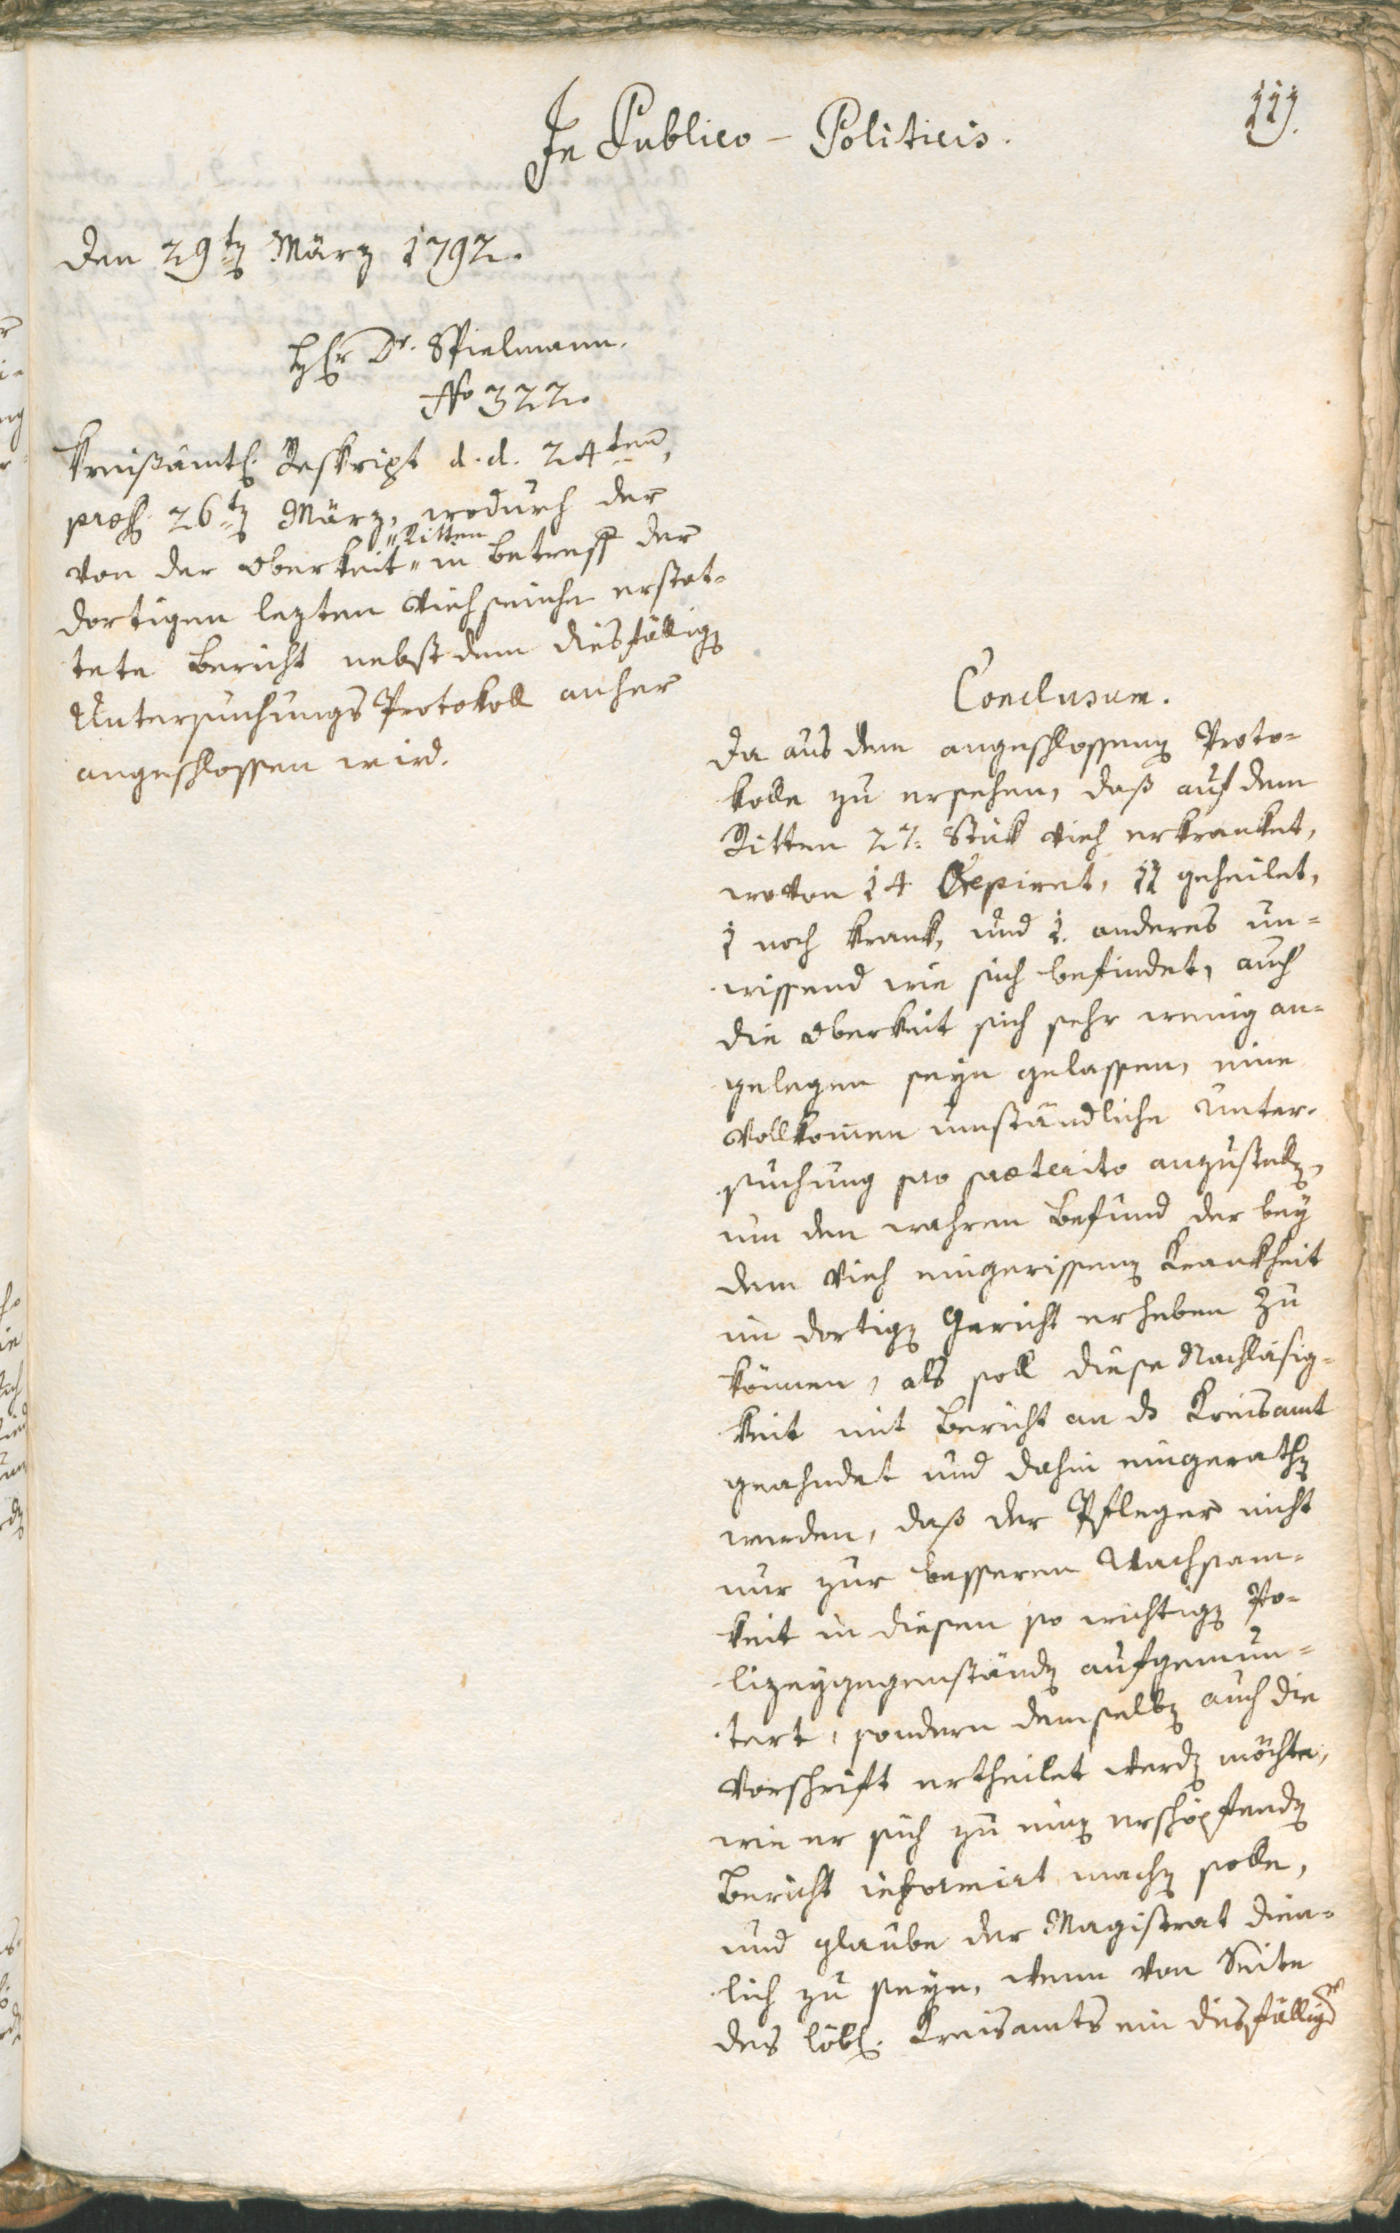 In Publico - Politicis.
111.
Den 29tn März 1792.
H Dr. Spielmann.
No 322.
Kreißämtl. Reskript d. d. 24ten,
præs. 26tn März, wodurch der
von der Oberkeit "Ritten" in Betreff der
dortigen lezten Viehseuche erstat-
tete Bericht nebst dem diesfälligen
Untersuchungs Protokoll anher
angeschlossen wird.
Conclusum.
Da aus dem angeschlossenen Proto-
kolle zu ersehen, daß auf dem
Ritten 27. Stük Vieh erkranket,
wovon 14 Crepiret, 11 geheilet,
1 noch krank, und 1. anderes un-
wissend wie sich befindet, auch
die Oberkeit sich sehr wenig an-
gelegen seyn gelassen, eine
vollkomen umständliche Unter-
suchung pro præterito anzustellen,
um den wahren Befund der bey
dem Vieh eingerissenen Krankheit
im dortigen Gericht erheben zu
können, als soll diese Nachläsig-
keit mit Bericht an ds Kreisamt
geahndet und dahin eingerathen
werden, daß der Pfleger nicht
nur zur besseren Wachsam-
keit in diesen so wichtigen Po-
lizeygegenständen aufgemun-
tert, sondern demselben auch die
Vorschrift ertheilet werden möchte,
wie er sich zu einen erschöpfenden
Bericht informirt machen solle,
und glaube der Magistrat dien-
lich zu seyn, wenn von Seite
des löbl. Kreisamts ein diesfälliger